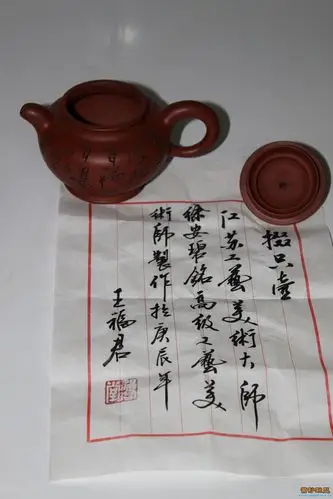 掇只壺
江苏工藝美術大師
徐安碧銘高级工藝美
術師製作於庚辰年
王福君